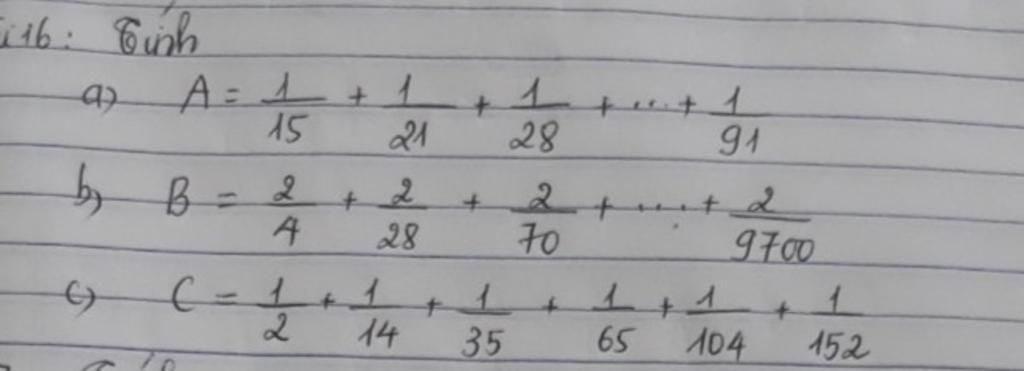 i16: Tính
a) A = 1/15 + 1/21 + 1/28 + ... + 1/91
b) B = 2/4 + 2/28 + 2/70 + .... + 2/9700
c) C = 1/2 + 1/14 + 1/35 + 1/65 + 1/104 + 1/152